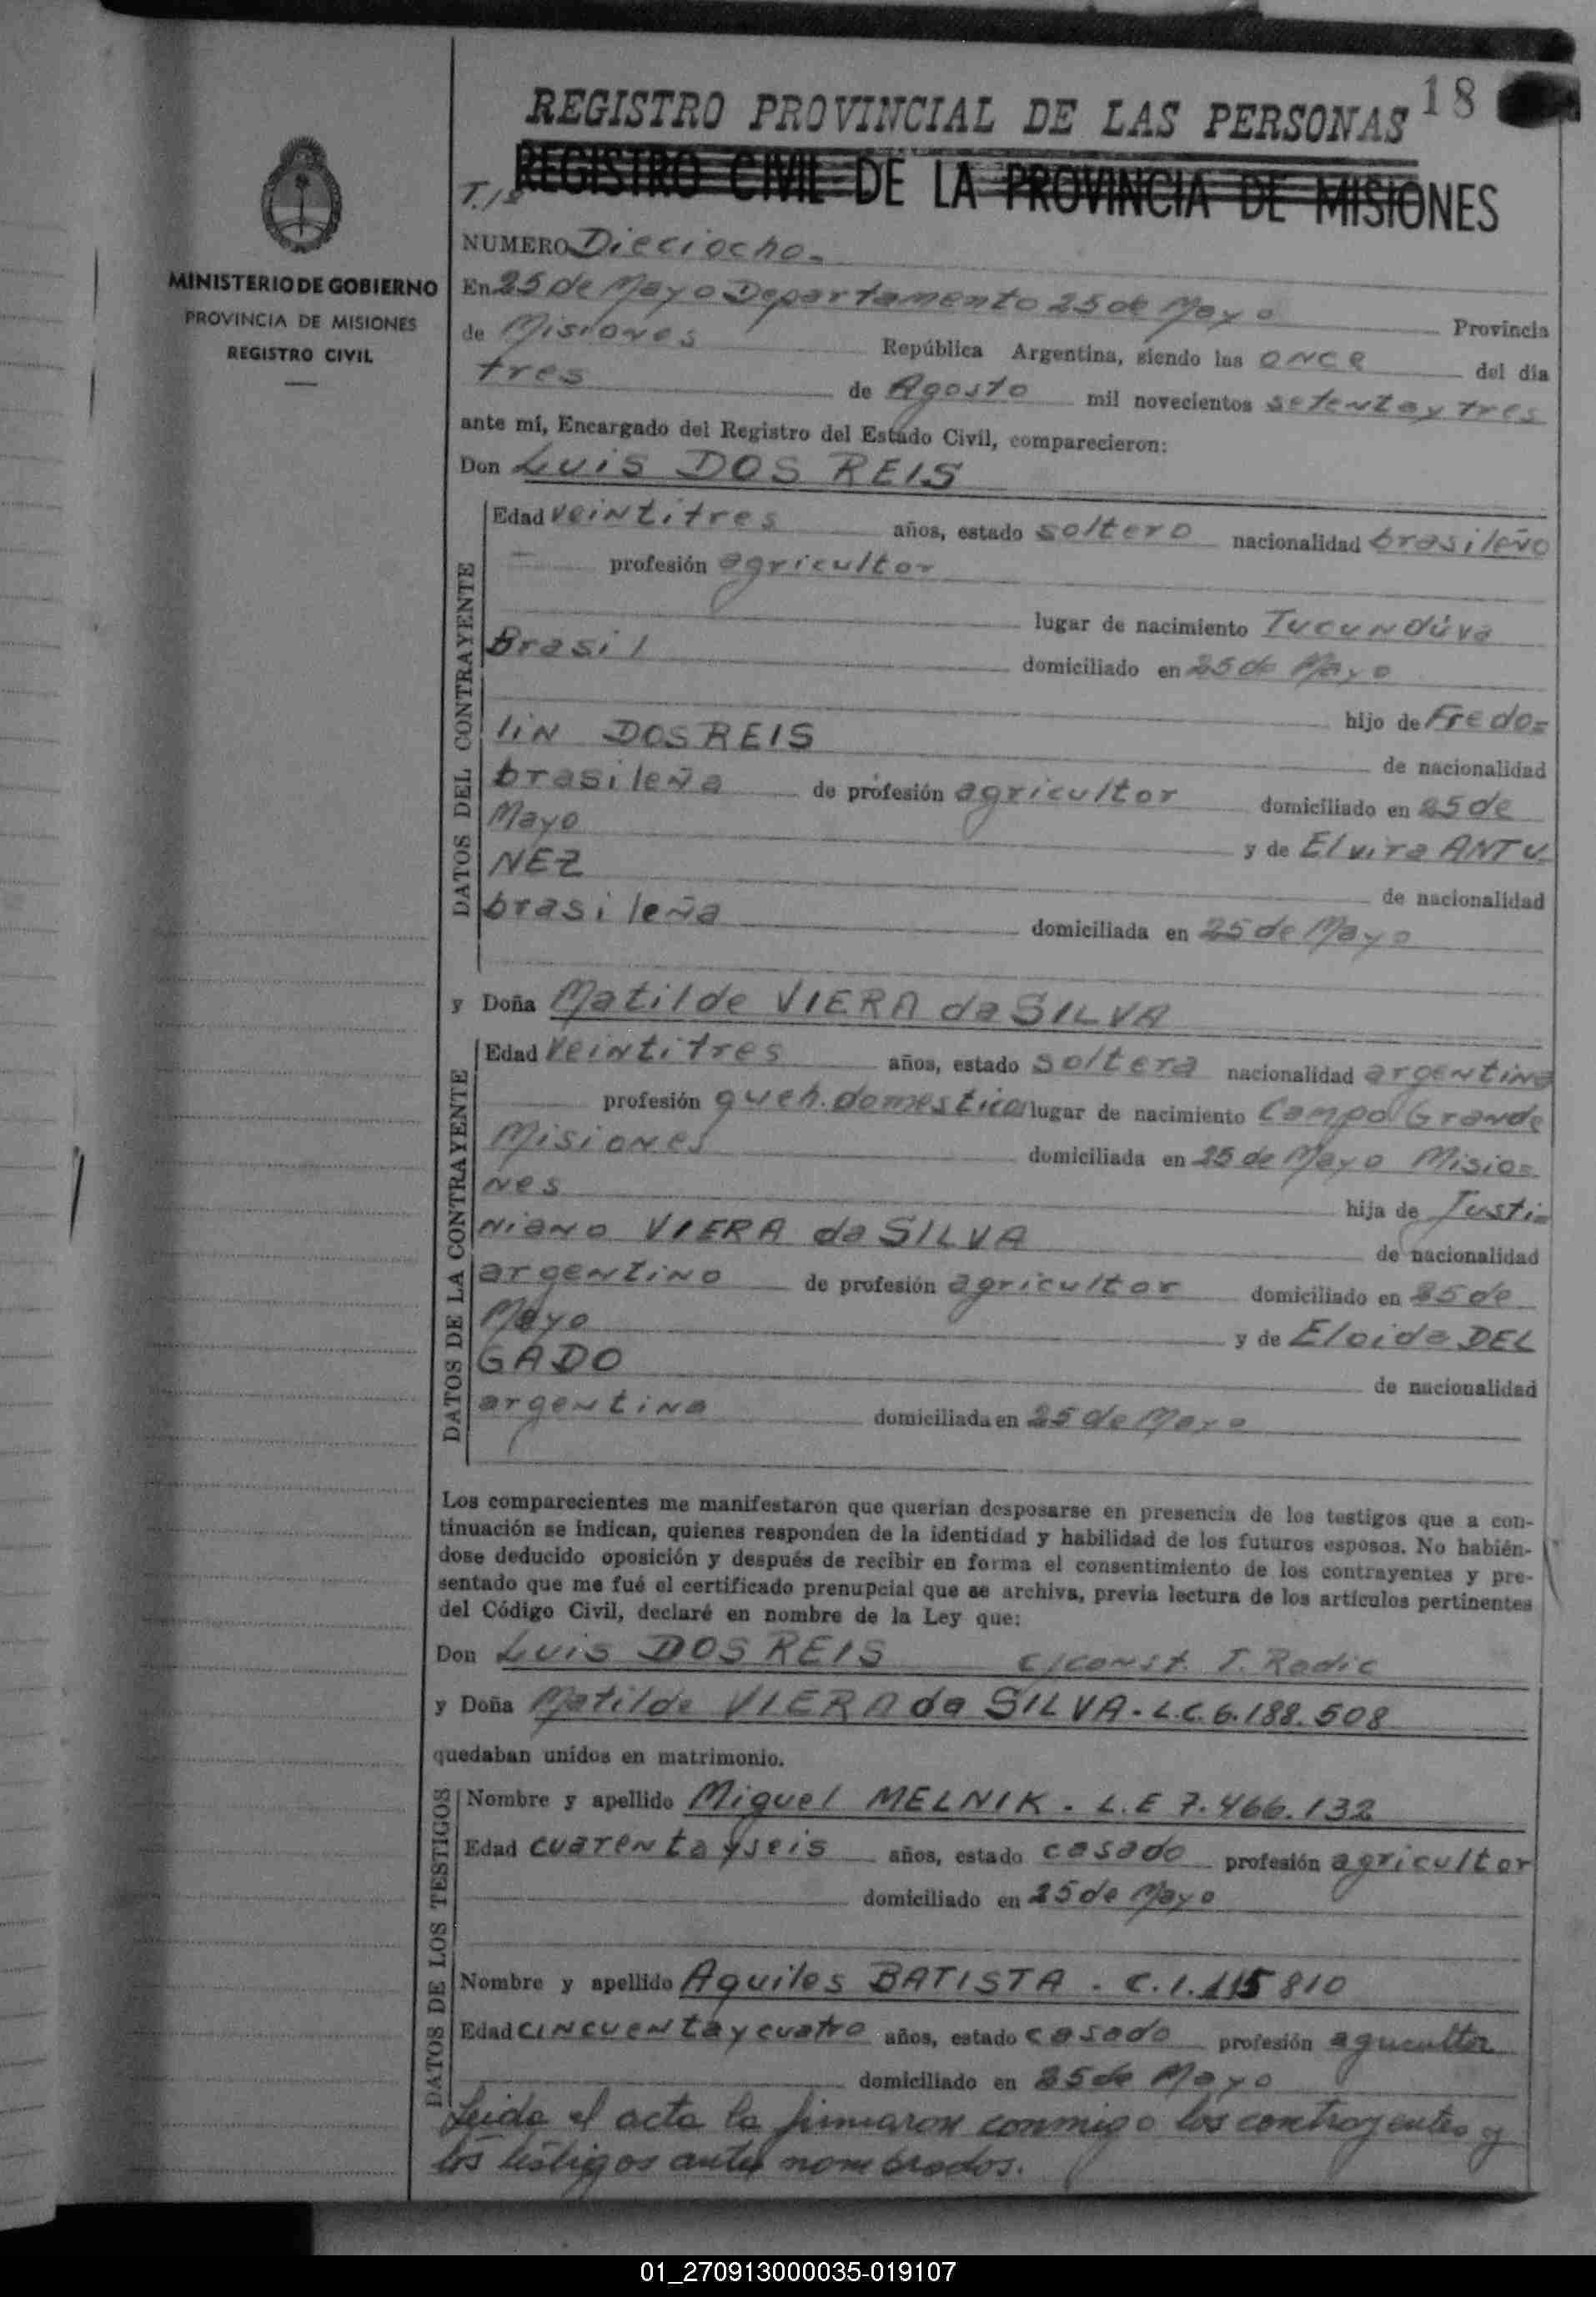 18
REGISTRO PROVINCIAL DE LAS PERSONAS
REGISTRO CIVIL DE LA PROVINCIA DE MISIONES
T. 18
MINISTERIO DE GOBIERNO
PROVINCIA DE MISIONES
REGISTRO CIVIL
NUMERO Dieciocho.
En 25 de Mayo Departamento 25 de Mayo Provincia
de Misiones República Argentina, siendo las once del día
tres de Agosto mil novecientos setenta y tres
ante mí, Encargado del Registro del Estado Civil, comparecieron:
Don Luis DOS REIS
DATOS DEL CONTRAYENTE
Edad veintitres años, estado soltero nacionalidad brasileño
profesión agricultor
lugar de nacimiento Tucundúva
Brasil domiciliado en 25 de Mayo
hijo de Fredo=
lin DOS REIS de nacionalidad
brasileña de profesión agricultor domiciliado en 25 de
Mayo y de Elvira ANTU-
NEZ de nacionalidad
brasileña domiciliada en 25 de Mayo
y Doña Matilde VIERA da SILVA
DATOS DE LA CONTRAYENTE
Edad veintitres años, estado soltera nacionalidad argentina
profesión queh. domestico lugar de nacimiento Campo Grande
Misiones domiciliada en 25 de Mayo Misio=
nes hija de Justi=
niano VIERA da SILVA de nacionalidad
argentino de profesión agricultor domiciliado en 25 de
Mayo y de Eloida DEL
GADO de nacionalidad
argentina domiciliada en 25 de Mayo
Los comparecientes me manifestaron que querían desposarse en presencia de los testigos que a con-
tinuación se indican, quienes responden de la identidad y habilidad de los futuros esposos. No habién-
dose deducido oposición y después de recibir en forma el consentimiento de los contrayentes y pre-
sentado que me fué el certificado prenupcial que se archiva, previa lectura de los artículos pertinentes
del Código Civil, declaré en nombre de la Ley que:
Don Luis DOS REIS c/const. T. Radic
y Doña Matilde VIERA da SILVA. L.C. 6.188.508
quedaban unidos en matrimonio.
DATOS DE LOS TESTIGOS
Nombre y apellido Miguel MELNIK. L.E 7.466.132
Edad cuarenta y seis años, estado casado profesión agricultor
domiciliado en 25 de Mayo
Nombre y apellido Aquiles BATISTA. C.I. 115810
Edad cincuenta y cuatro años, estado casado profesión agricultor
domiciliado en 25 de Mayo
Leida el acta la firmaron conmigo los contrayentes y
los testigos antes nombrados.
01_270913000035-019107